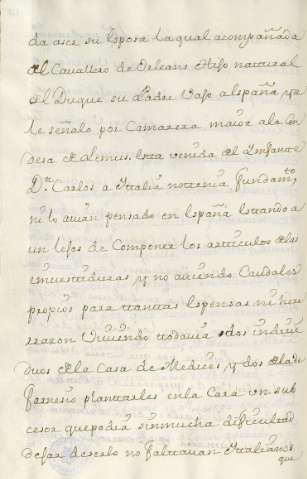 da ase su esposa la qual acompañada
del Cavallero de Orleans Hijo natural
del Duque su Padre Vajo a españa y se
le señalo por Camarera maior a la Con
desa de Lemus. esta venida del Infante
Dn. Carlos a Italia no tenia fundamto
ni lo avian pensado en españa estando a
un lejos de Componer los articulos de las
imuestiduras y no auiendo Caudales
propios para tantas espensas ni hu
Viuiendo todauia dos indiui
duos de la Casa de Medicis y dos de la de
Farnesio plantarles en la Casa un sub
cesor que podia sin mucha dificultad
dejar de serlo no faltauan Italianos
que